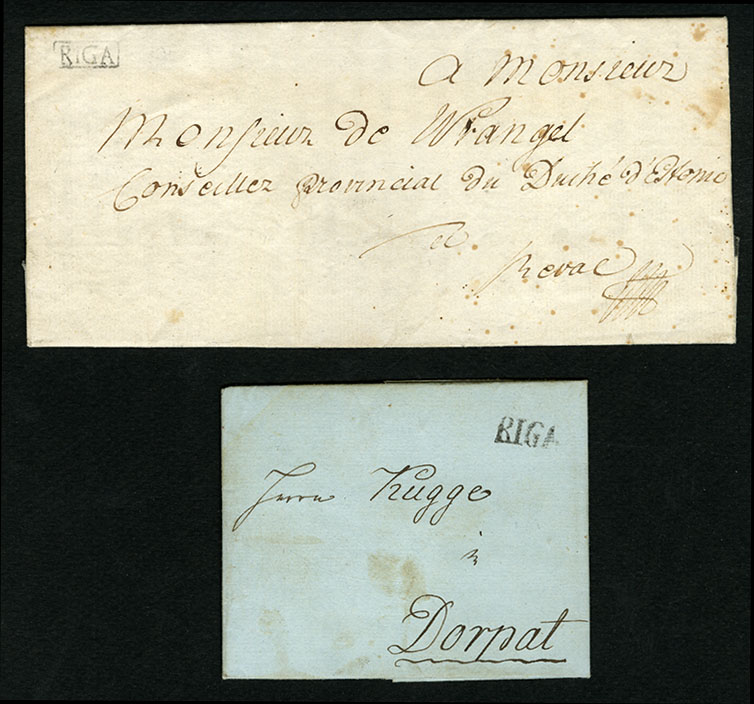 RIGA
A Monsieur
Monsieur de Wrangel
Conseiller provincial du Duché d'Estonie
à
Reval
RIGA
Herrn Kugge
in
Dorpat